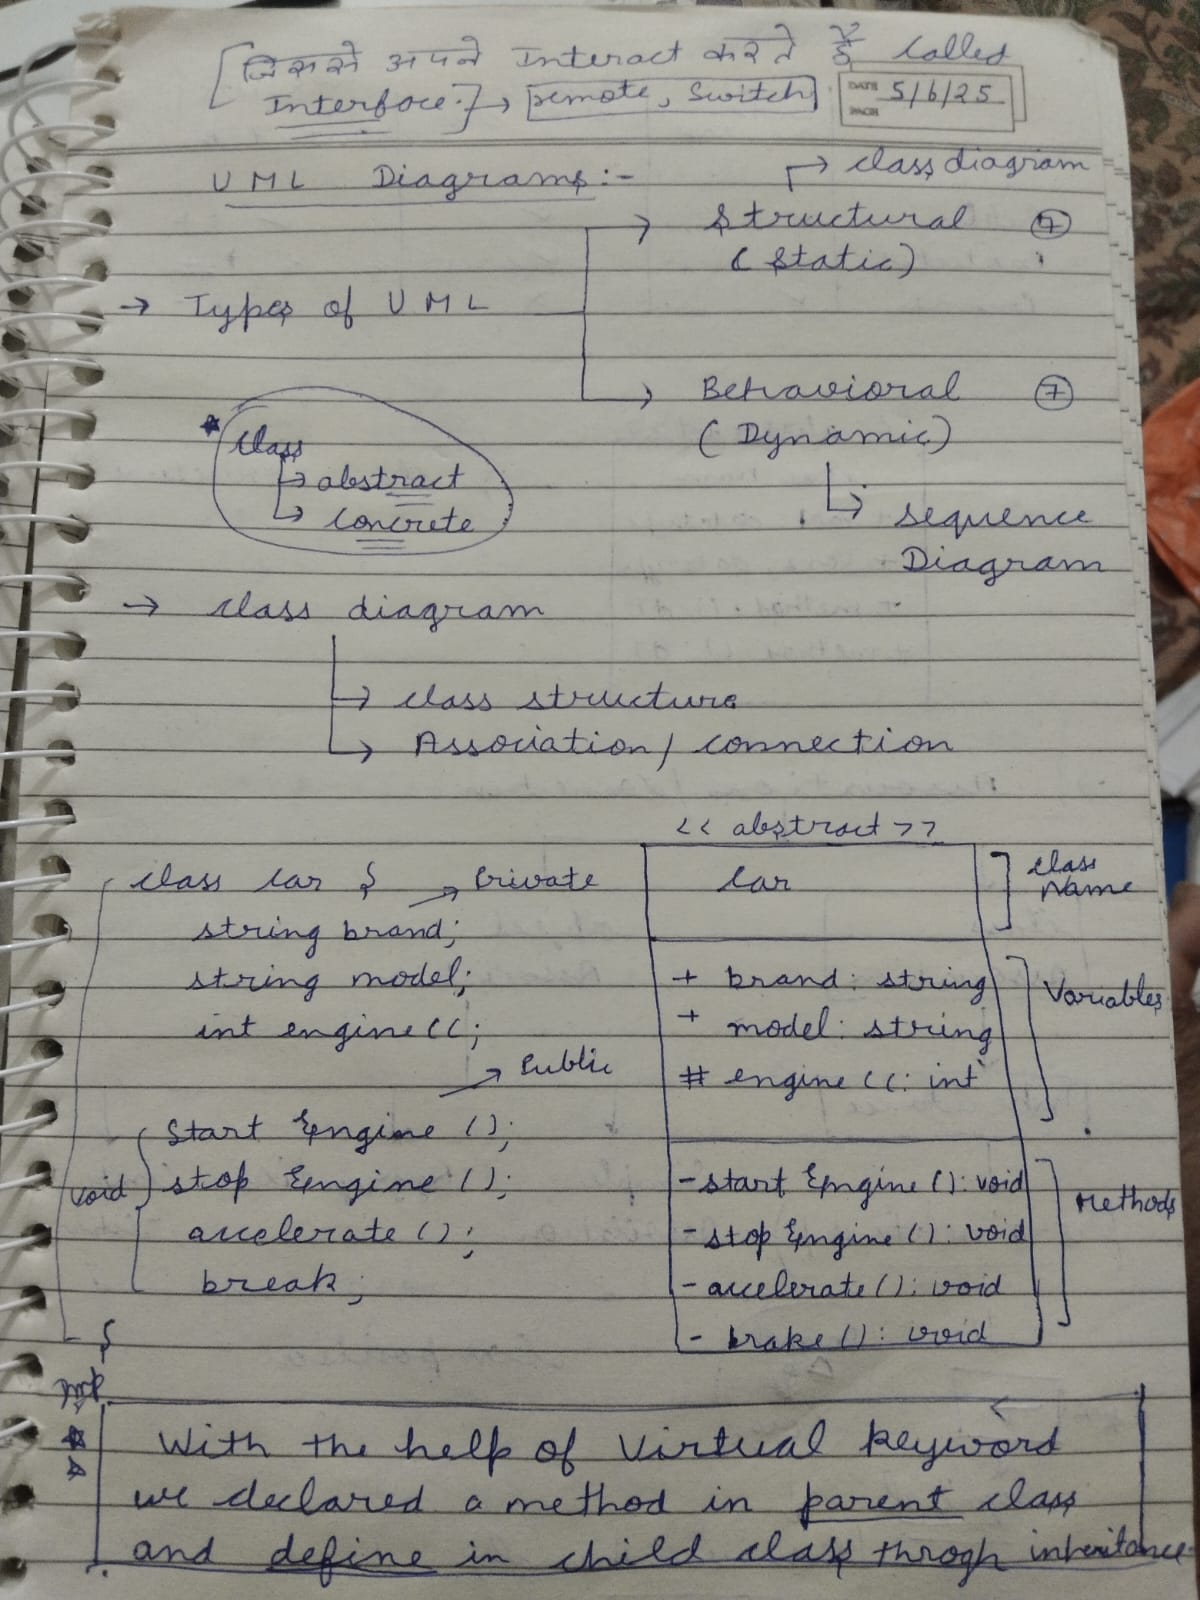 [जिससे अपने Interact करते हैं called
Interface.] → remote, Switch
DATE 5/6/25
PAGE
UML Diagrams:-
→ class diagram
→ Structural 7
(Static)
→ Types of UML
→ Behavioral 7
(Dynamic)
↳ sequence
Diagram
* class
→ abstract
→ concrete
→ class diagram
→ class structure
→ Association/connection
<< abstract >>
class car { → Private
string brand;
string model;
int engine CC;
→ Public
void
Start Engine ();
stop Engine ();
accelerate ();
break;
}
Car
class
Name
+ brand: string
+ model: string
# engine CC: int
Variables
- start Engine (): void
- stop Engine (): void
- accelerate (): void
- brake (): void
Methods
Imp.
With the help of Virtual keyword
we declared a method in parent class
and define in child class throgh inheritance